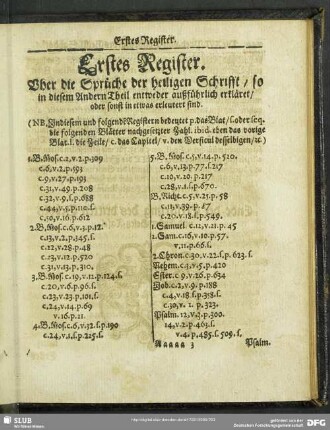 Erstes Register.
Erstes Register.
Vber die Sprüche der heiligen Schrifft / so
in diesem Andern Theil entweder außführlich erkläret /
oder sonst in etwas erleutert sind.
(NB. In diesem und folgende Registern bedeutet p. das Blat / f. oder seq.
die folgenden Blätter nachgesetzter Zahl. ibid. eben das vorige
Blat. l. die Zeile / c. das Capitel / v. den Versicul desselbigen / ꝛc.)
1. B. Mos. c. 2, v. 2. p. 309
c. 6, v. 2. p. 593
c. 9, v. 27. p. 193
c. 31, v. 49. p. 208
c. 32, v. 9. f. p. 688
c. 44, v. 5. p. 110.
c. 50, v. 16. p. 612
2. B. Mos. c. 6, v. 3. p. 12.
c. 13, v. 2. p. 345. f.
c. 12, v. 28. p. 48
c. 13, v. 12. p. 520
c. 31, v. 13. p. 310.
3. B. Mos. c. 19, v. 12. p. 124. f.
c. 20, v. 6. p. 96. f.
c. 23, v. 23. p. 101, f.
c. 24, v. 14. p. 69
v. 16. p. 11.
4. B. Mos. c. 6, v. 32. f. p. 190
c. 24, v. 1. f. p. 215. f.
5. B. Mos. c. 5, v. 14. p. 510.
c. 6, v. 13. p. 77. f. 217
c. 10, v. 20. p. 217
c. 28, v. 1. f. p. 670.
B. Richt. c. 5, v. 25. p. 58
c. 11, v. 39. p. 17
c. 20. v. 18. f. p. 549.
1. Samuel. c. 11, v. 11. p. 45
1. Sam. c. 16, v. 10. p. 57.
v. 11. p. 66. f.
2. Chron. c. 30. v. 22. f. p. 623. f.
Nehem. c. 13, v. 5. p. 420
Ester. c. 9, v. 26. p. 634
Hiob. c. 2, v. 9. p. 188
c. 4, v. 18. f. p. 318. f.
c. 30, v. 2. p. 323.
Psalm. 12, v. 9. p. 300.
14, v. 2. p. 463. f.
v. 4. p. 485. f. 509. f.
Aaaaa 3
Psalm.
SLUB
DFG